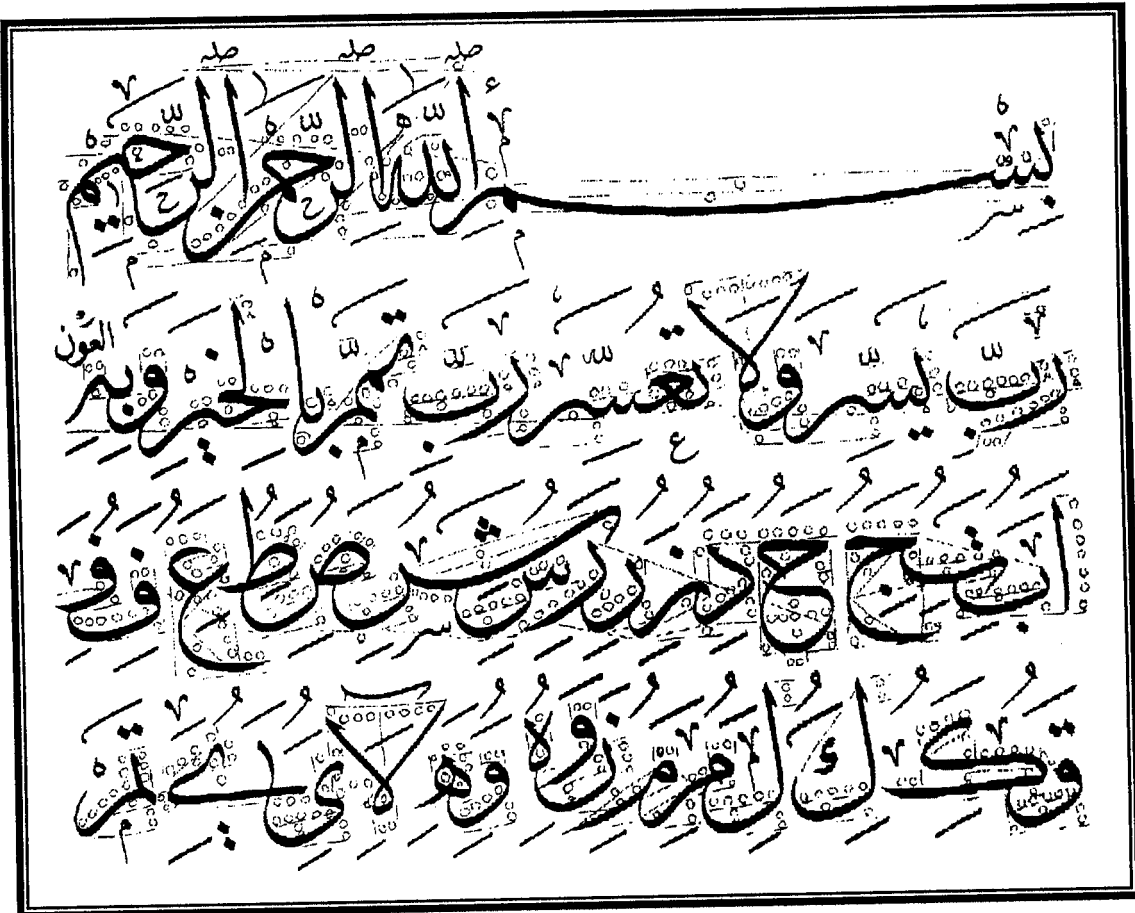 بِسْمِ اللّٰهِ الرَّحْمٰنِ الرَّحِيْمِ
رَبِّ يَسِّرْ وَلَا تُعَسِّرْ رَبِّ تَمِّمْ بِالْخَيْرِ وَبِهِ الْعَوْن
ا ب ث ج ح د ذ ر ر س ش س ص ط ع ف و
ق ك ك ل م م ن و ه و ه لا ى ے تم